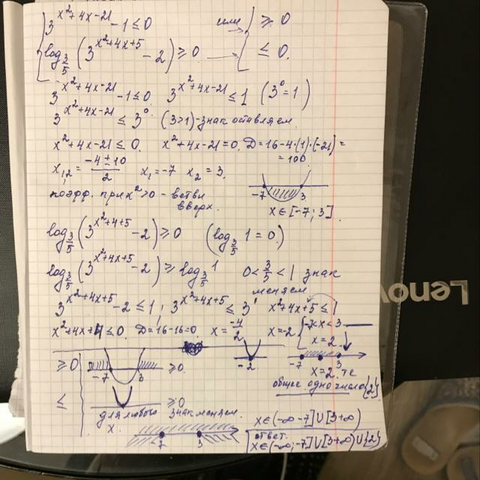 3^(x²+4x-21) - 1 ≤ 0 или ≥ 0
log_(3/5) (3^(x²+4x+5) - 2) ≥ 0 ≤ 0.
3^(x²+4x-21) - 1 ≤ 0 3^(x²+4x-21) ≤ 1 (3⁰ = 1)
3^(x²+4x-21) ≤ 3⁰ (3>1) - знак оставляем
x²+4x-21 ≤ 0. x²+4x-21=0. D=16-4·(1)·(-21) =
= 100
x₁,₂ = (-4±10)/2 x₁=-7 x₂=3.
коэфф. при x²>0 - ветви
вверх.
-7 3
x∈[-7; 3].
log_(3/5) (3^(x²+4x+5) - 2) ≥ 0 (log_(3/5) 1 = 0)
log_(3/5) (3^(x²+4x+5) - 2) ≥ log_(3/5) 1 0 < 3/5 < 1 знак
меняем
3^(x²+4x+5) - 2 ≤ 1; 3^(x²+4x+5) ≤ 3¹ x²+4x+5 ≤ 1
x²+4x+4 ≤ 0. D=16-16=0. x = -4/2 x=-2
-7<x<3
x=2
≥ 0 -7 3 ≥ 0.
-2
-7 3
x=2 те
общее одно число {2}
≤ ≥ 0
для любого знак меняем.
x
x∈(-∞ -7]∪[3+∞)
-7 3
ответ.
x∈(-∞;-7]∪[3+∞)∪{2}
Lenov